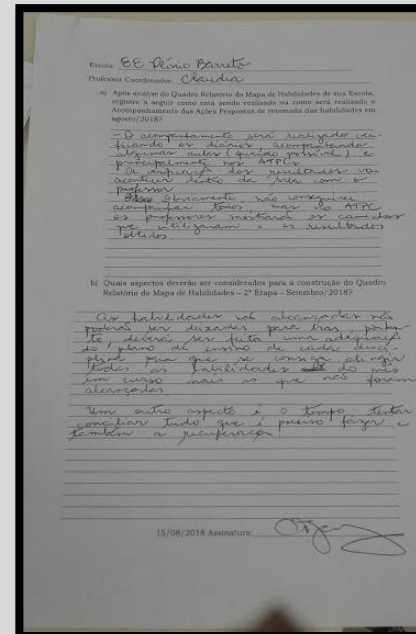 Escola: EE Plínio Barreto
Professor Coordenador: Claudia
a) Após análise do Quadro Relatório do Mapa de Habilidades de sua Escola,
registre a seguir como está sendo realizado ou como será realizado o
Acompanhamento das Ações Propostas de retomada das habilidades em
agosto/2018?
- O acompanhamento será realizado veri-
ficando os diários acompanhando
algumas aulas (quando possível) e
principalmente nos ATPCs
A verificação dos resultados vai
acontecer dentro da sala com o
professor
Obviamente não conseguirei
acompanhar todos mas no ATPC
os professores mostrarão os caminhos
que utilizaram e os resultados
obtidos.
b) Quais aspectos deverão ser considerados para a construção do Quadro
Relatório do Mapa de Habilidades – 2ª Etapa – Setembro/2018?
As habilidades não alcançadas não
poderão ser deixadas para trás, portan
to deverá ser feita uma adequação
do plano de ensino de cada disci-
plina para que se consiga atingir
todas as habilidades do mês
em curso mais as que não foram
alcançadas
Um outro aspecto é o tempo, tentar
conciliar tudo que é preciso fazer e
também a recuperação
15/08/2018 Assinatura: